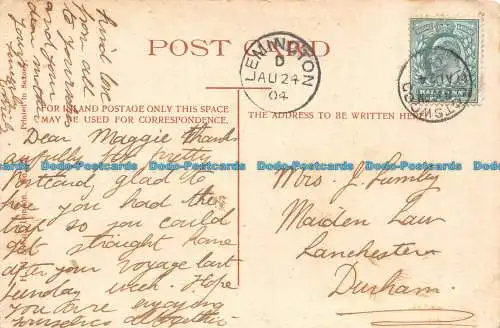 POST CARD
LEMINGTON
D
AU 24
04
FOR INLAND POSTAGE ONLY THIS SPACE
MAY BE USED FOR CORRESPONDENCE.
THE ADDRESS TO BE WRITTEN HERE
Dear Maggie thanks
awfully for pretty
Postcard, glad to
hear you had the
trap so you could
get straight home
after your voyage last
Sunday week. Hope
you are enjoying
yourselves altogether
kind love
from all
to yourselves
and your
dear mother
Yours
Mrs. J. Lumley
Maiden Law
Lanchester
Durham.
Printed in Saxony
Dodo-Postcards Dodo-Postcards Dodo-Postcards Dodo-Postcards